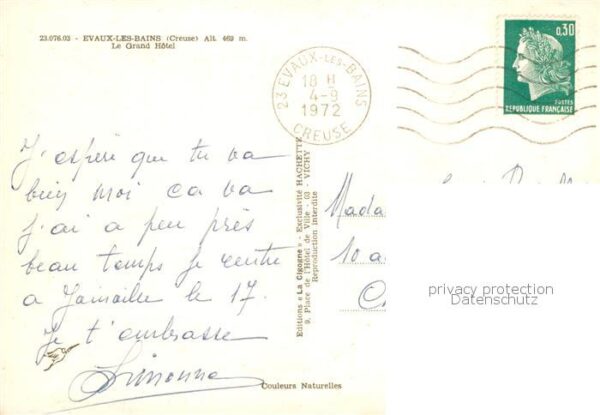 23.076.03 - EVAUX-LES-BAINS (Creuse) Alt. 469 m.
Le Grand Hôtel
23 EVAUX-LES-BAINS
18 H
4-9
1972
CREUSE
0,30
POSTES
REPUBLIQUE FRANÇAISE
J'espère que tu va
bien moi ca va
j'ai a peu près
beau temps je rentre
a le 17.
Je t'embrasse
Simonne
Editions « La Cigogne » - Exclusivité HACHETTE
9, Place de l'Hôtel de Ville - 03 VICHY
Reproduction interdite
Mada
10 a
privacy protection
Datenschutz
Couleurs Naturelles